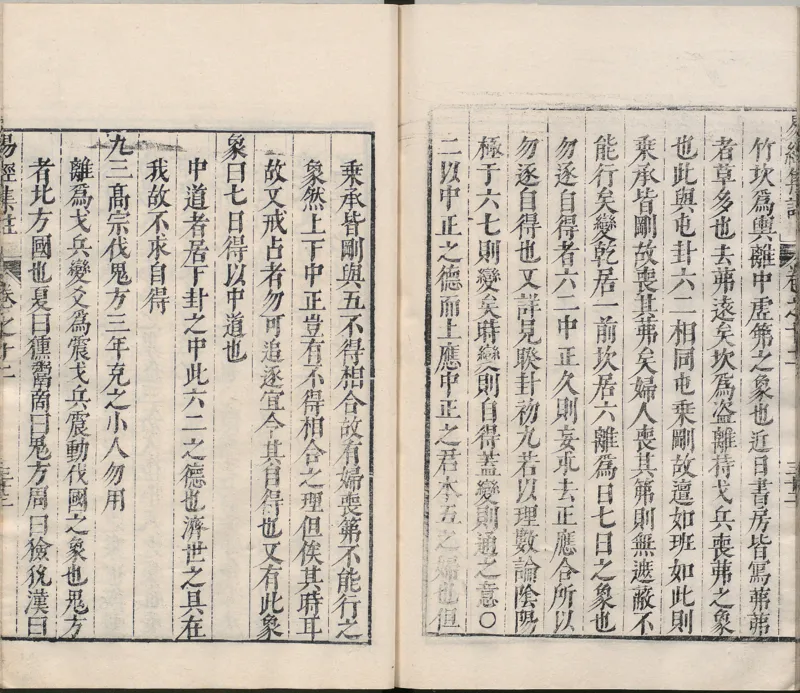 竹坎爲輿離中虛茀之象也近日書房皆寫茀茀
者草多也去茀遠矣坎爲盗離持戈兵喪茀之象
也此與屯卦六二相同屯乘剛故邅如班如此則
乘承皆剛故喪其茀矣婦人喪其茀則無遮蔽不
能行矣變乾居一前坎居六離爲日七日之象也
勿逐自得者六二中正久則妄求去正應合所以
勿逐自得也又詳見睽卦初九若以理數論陰陽
極于六七則變矣時變則自得葢變則通之意〇
二以中正之德而上應中正之君本五之婦也但
易經集註
卷之十二
乘承皆剛與五不得相合故有婦喪茀不能行之
象然上下中正豈有不得相合之理但俟其時耳
故又戒占者勿可追逐宜令其自得也又有此象
象曰七日得以中道也
中道者居下卦之中此六二之德也濟世之具在
我故不求自得
九三高宗伐鬼方三年克之小人勿用
離爲戈兵變爻爲震戈兵震動伐國之象也鬼方
者北方國也夏曰獯鬻商曰鬼方周曰獫狁漢曰
易經集註
卷之十二